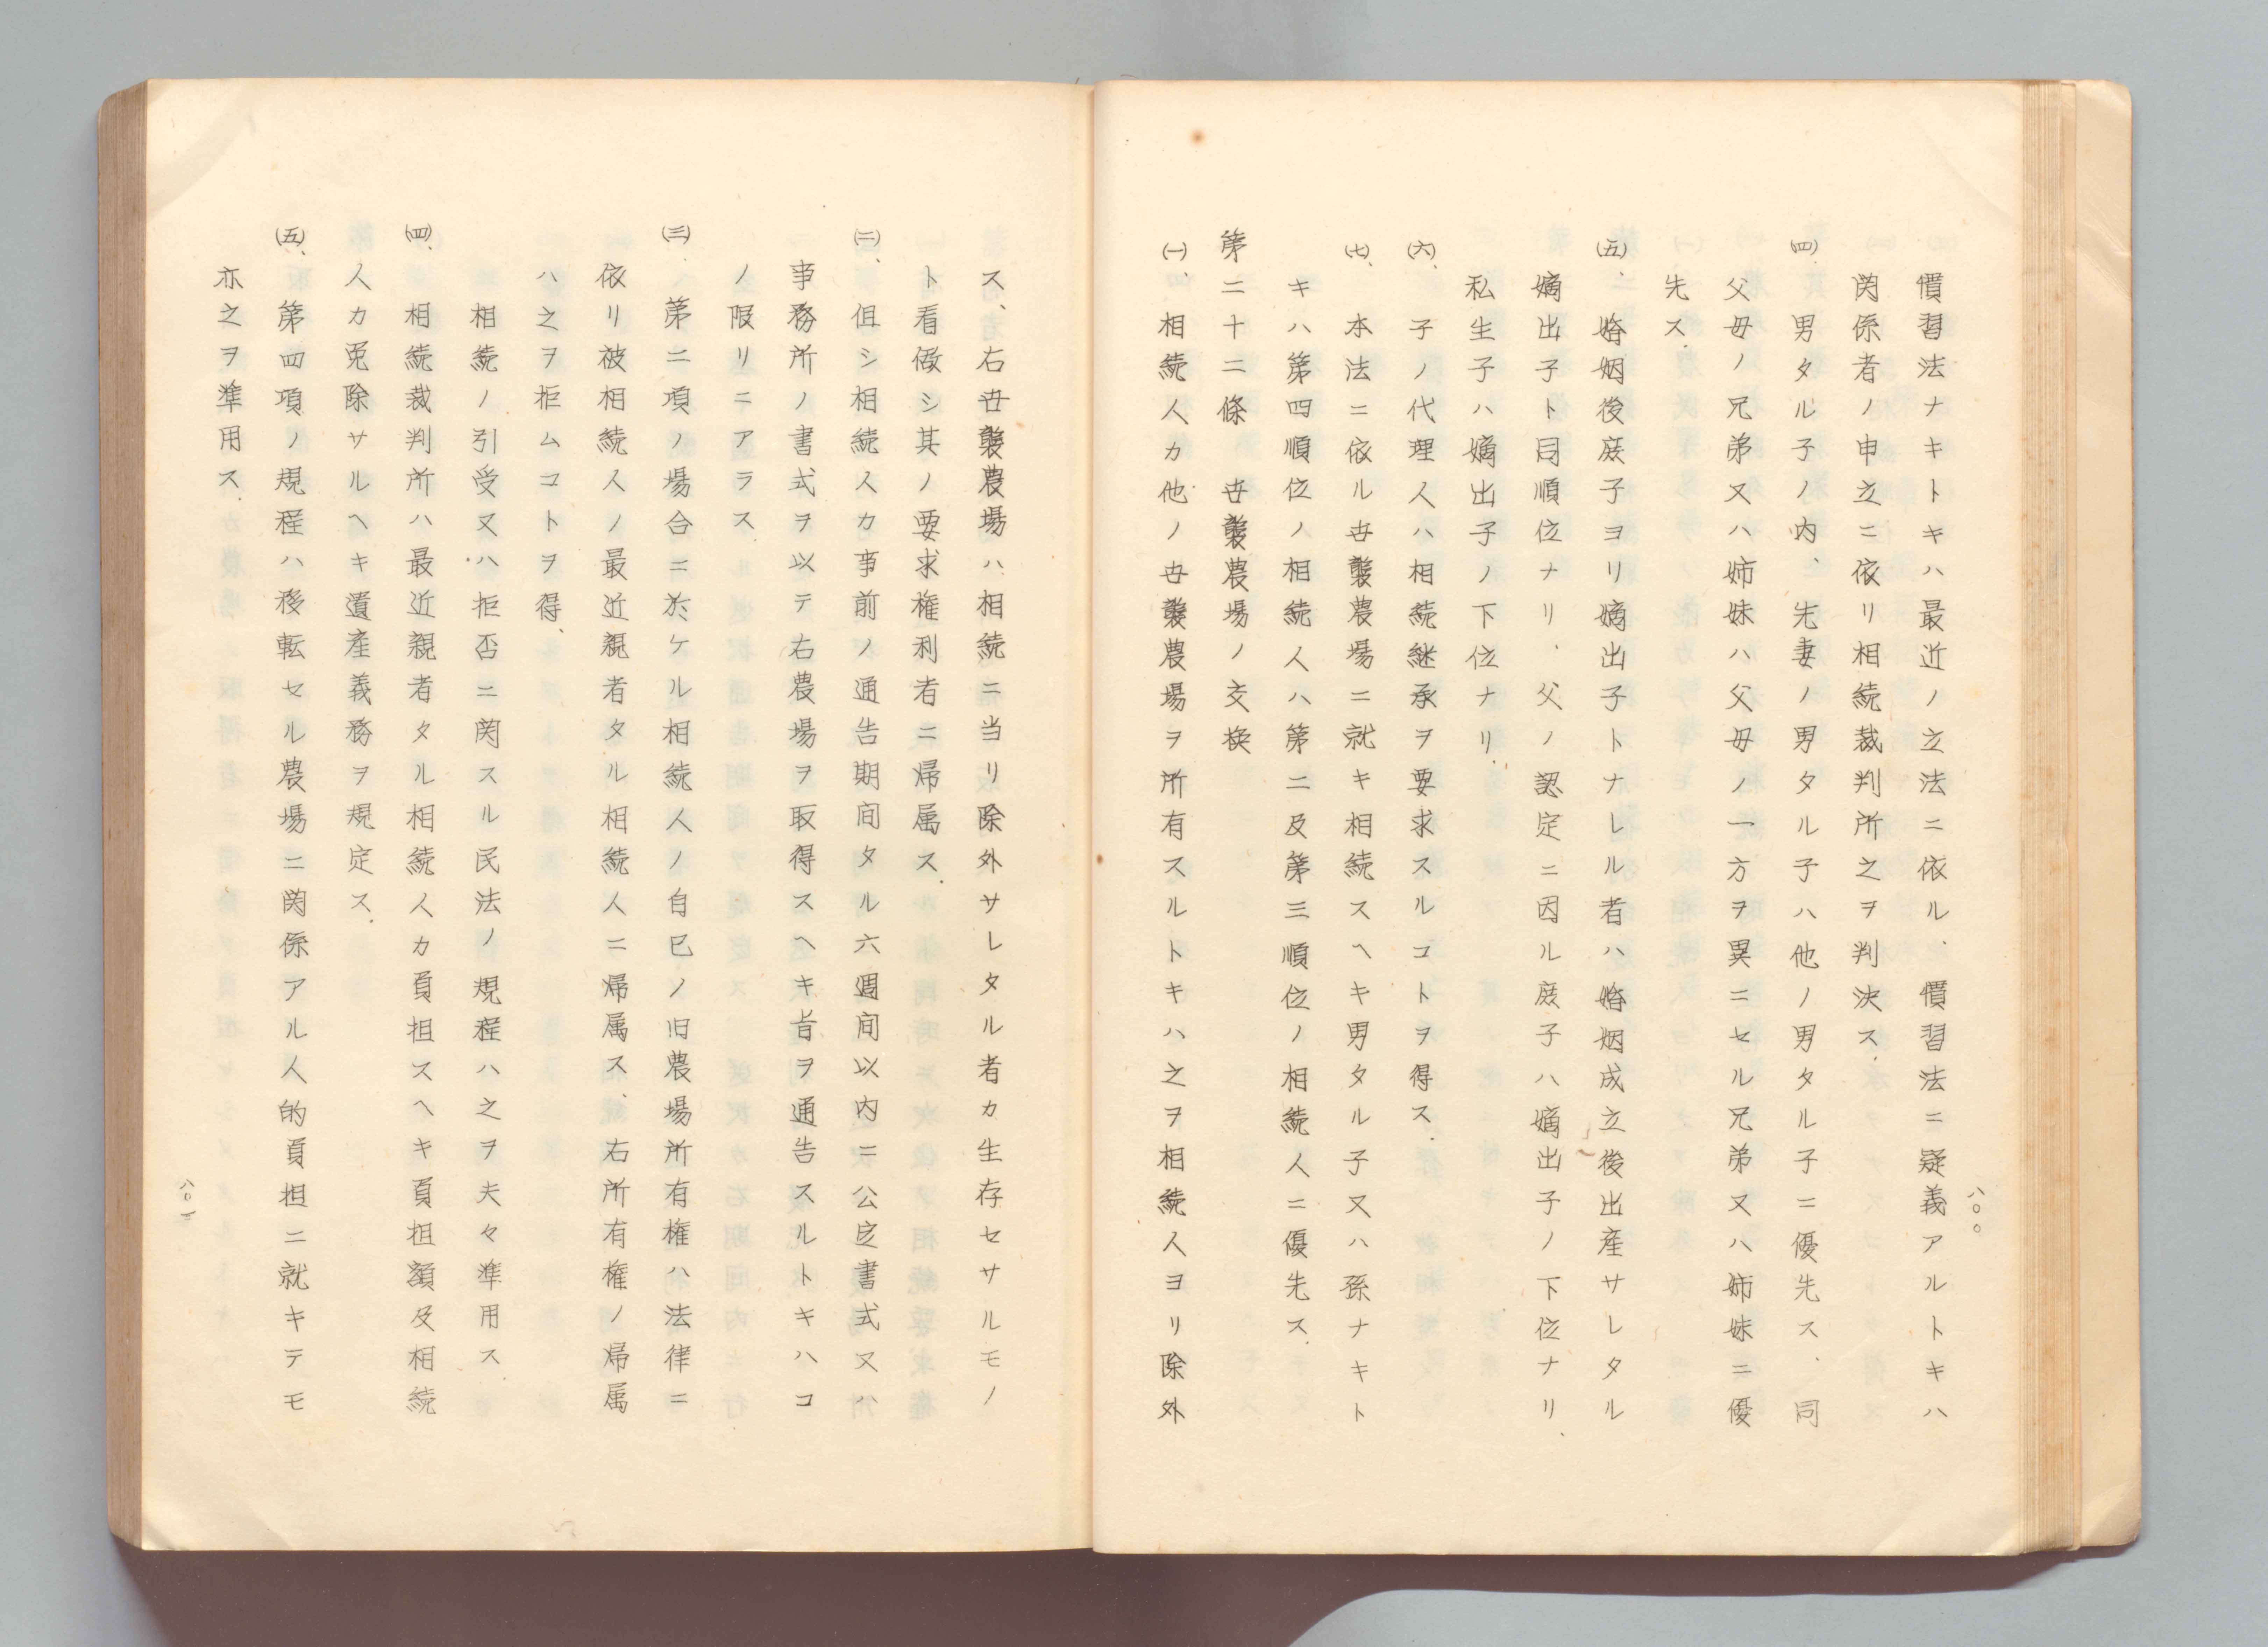 慣習法ナキトキハ最近ノ立法ニ依ル、慣習法ニ疑義アルトキハ
関係者ノ申立ニ依リ相続裁判所之ヲ判決ス、
㈣、男タル子ノ内、先妻ノ男タル子ハ他ノ男タル子ニ優先ス、同
父母ノ兄弟又ハ姉妹ハ父母ノ一方ヲ異ニセル兄弟又ハ姉妹ニ優
先ス、
㈤、婚姻後庶子ヨリ嫡出子トナレル者ハ婚姻成立後出産サレタル
嫡出子ト同順位ナリ、父ノ認定ニ因ル庶子ハ嫡出子ノ下位ナリ、
私生子ハ嫡出子ノ下位ナリ、
㈥、子ノ代理人ハ相続継承ヲ要求スルコトヲ得ス、
㈦、本法ニ依ル世襲農場ニ就キ相続スヘキ男タル子又ハ孫ナキト
キハ第四順位ノ相続人ハ第二及第三順位ノ相続人ニ優先ス、
第二十二條　世襲農場ノ交換
㈠、相続人カ他ノ世襲農場ヲ所有スルトキハ之ヲ相続人ヨリ除外
八〇〇
ス、右世襲農場ハ相続ニ当リ除外サレタル者カ生存セサルモノ
ト看做シ其ノ要求権利者ニ帰属ス、
㈡、但シ相続人カ事前ノ通告期間タル六週間以内ニ公定書式又ハ
事務所ノ書式ヲ以テ右農場ヲ取得スヘキ旨ヲ通告スルトキハコ
ノ限リニアラス、
㈢、第二項ノ場合ニ於ケル相続人ノ自己ノ旧農場所有権ハ法律ニ
依リ被相続人ノ最近親者タル相続人ニ帰属ス、右所有権ノ帰属
ハ之ヲ拒ムコトヲ得、
相続ノ引受又ハ拒否ニ関スル民法ノ規程ハ之ヲ夫々準用ス、
㈣、相続裁判所ハ最近親者タル相続人カ負担スヘキ負担額及相続
人カ免除サルヘキ遺産義務ヲ規定ス、
㈤、第四項ノ規程ハ移転セル農場ニ関係アル人的負担ニ就キテモ
亦之ヲ準用ス、
八〇一